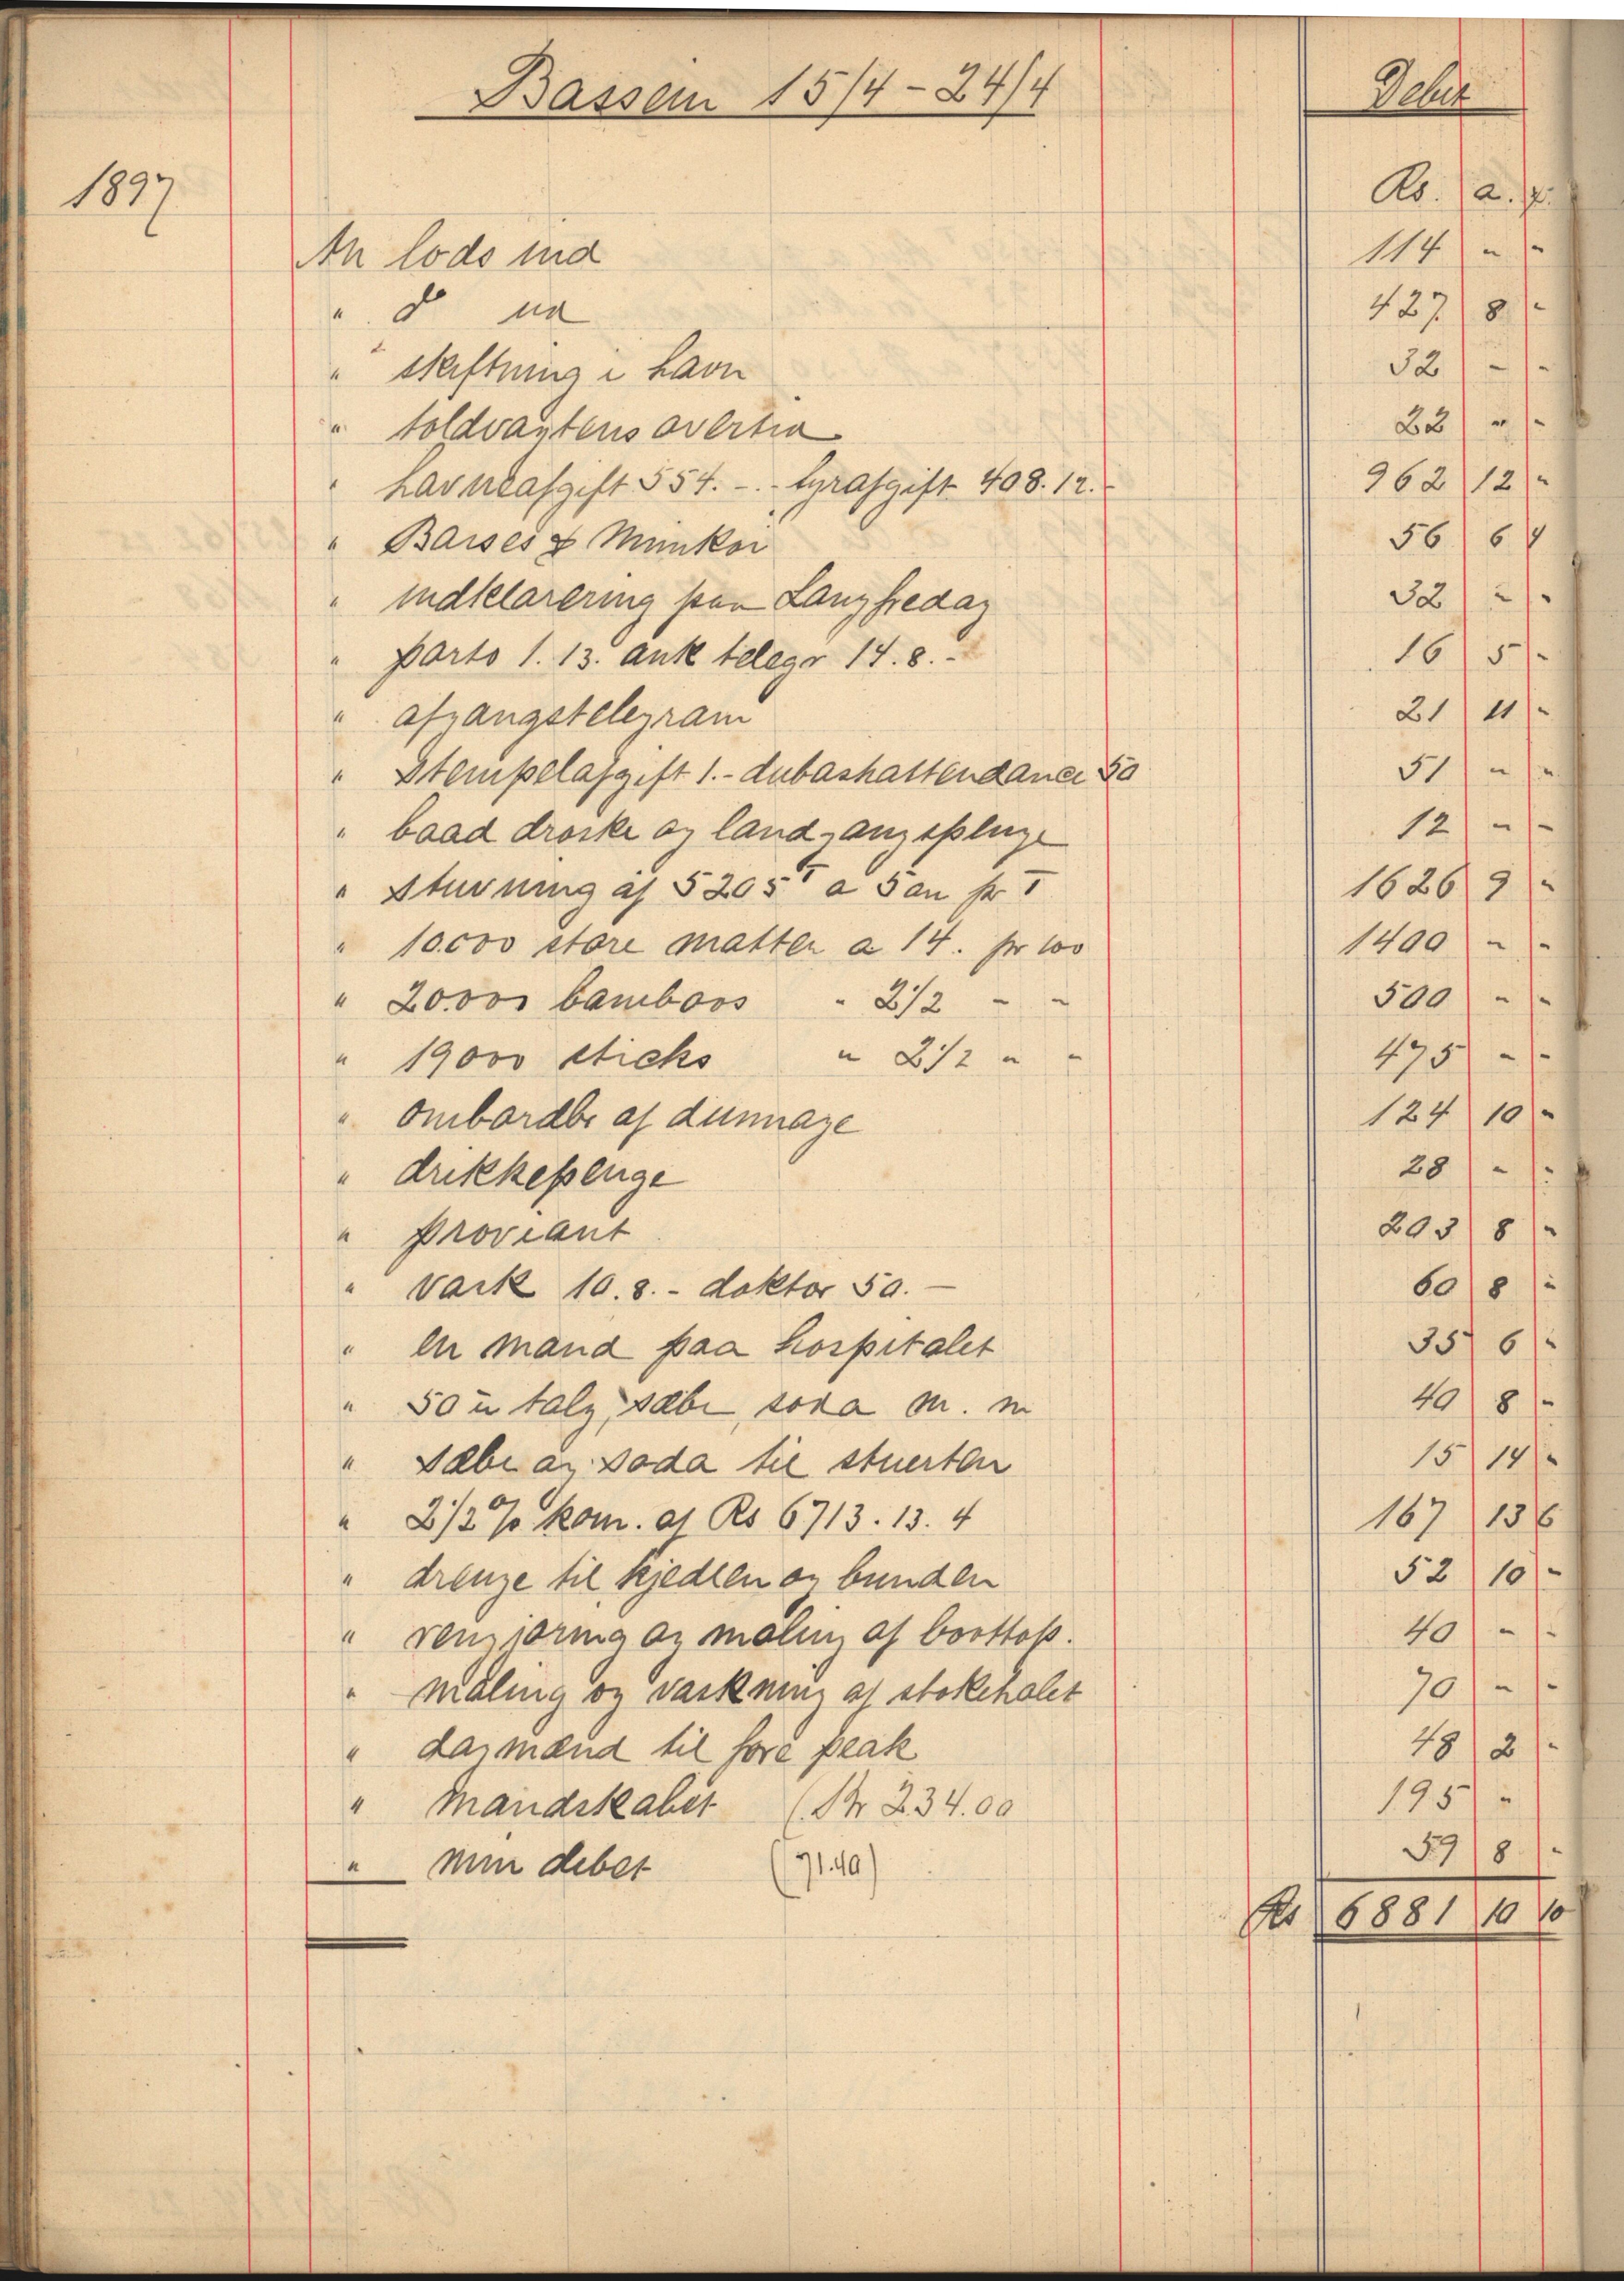 Bassein 15/4 - 24/4 Debet
1897 Rs. a. p.
An lods ind 114 " "
" do ud 427 8 "
" skiftning i havn 32 " "
" toldvagtens overtid 22 " "
" havneafgift 554. -. - fyrafgift 408. 12. - 962 12 "
" Barses & 56 6 4
" indklarering paa Langfredag 32 " "
" porto 1. 13. ank telegr 14. 8. - 16 5 -
" afgangstelegram 21 11 "
" Stempelafgift 1. - dubashattendance 50 51 " "
" baad droske og landgangspenge 12 " "
" Stuvning af 5205 T a 5 an pr T 1626 9 "
" 10.000 store matter a 14. pr 100 1400 " "
" 20.000 bamboos " 2 1/2 " " 500 " "
" 19000 sticks " 2 1/2 " " 475 " "
" ombordbr af dunnage 124 10 "
" drikkepenge 28 " "
" proviant 203 8 "
" vask 10. 8. - doktor 50. — 60 8 "
" en mand paa hospitalet 35 6 "
" 50 u talg, sæbe, soda m. m 40 8 "
" sæbe og soda til stuerten 15 14 "
" 2 1/2 % kom. af Rs 6713. 13. 4 167 13 6
" drenge til kjedlen og bunden 52 10 "
" rengjøring og maling af boottop. 40 " "
" maling og vaskning af stokeholet 70 " "
" dagmænd til fore peak 48 2 "
" Mandskabet (Kr 234.00 195 "
" min debet (71.40) 59 8 "
Rs 6881 10 10